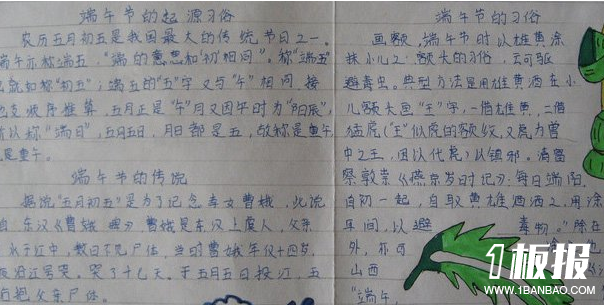 端午节的起源习俗
农历五月初五是我国最大的传统节日之一。
端午亦称端五，"端的意思和"初"相同"。称"端五
也就如称"初五"，端五的"五"字又与"午"相同 按
地支顺序推算，五月正是"午"月又因午时为"阳辰"，
所以称"端日"，五月五日，月日都是五，故称是重午
是重午。
端午节的传统
据说"五月初五"是为了记念孝女曹娥，此说
自东汉《曹娥碑》曹娥是东汉上虞人，父亲
水于江中，数日不见尸体，当时曹娥年仅十四岁，
夜沿江号哭。哭了十七天，于五月五日投江，五
后抱父亲尸体。
端午节的习俗
画额，端午节时以雄黄涂
抹小儿之额头的习俗，云可驱
避毒虫。典型方法是用雄黄酒在小
儿额头画"王"字，一借雄黄，一借
猛虎（"王"似虎的额纹，又虎为兽
中之王，因以代虎）以镇邪。清富
察敦崇《燕京岁时记》：每日端阳，
自初一起，自取雄黄酒洒之，用涂
耳间，以避 毒物。"除在
外，亦可
山西
"端午
1板报
WWW.1BANBAO.COM